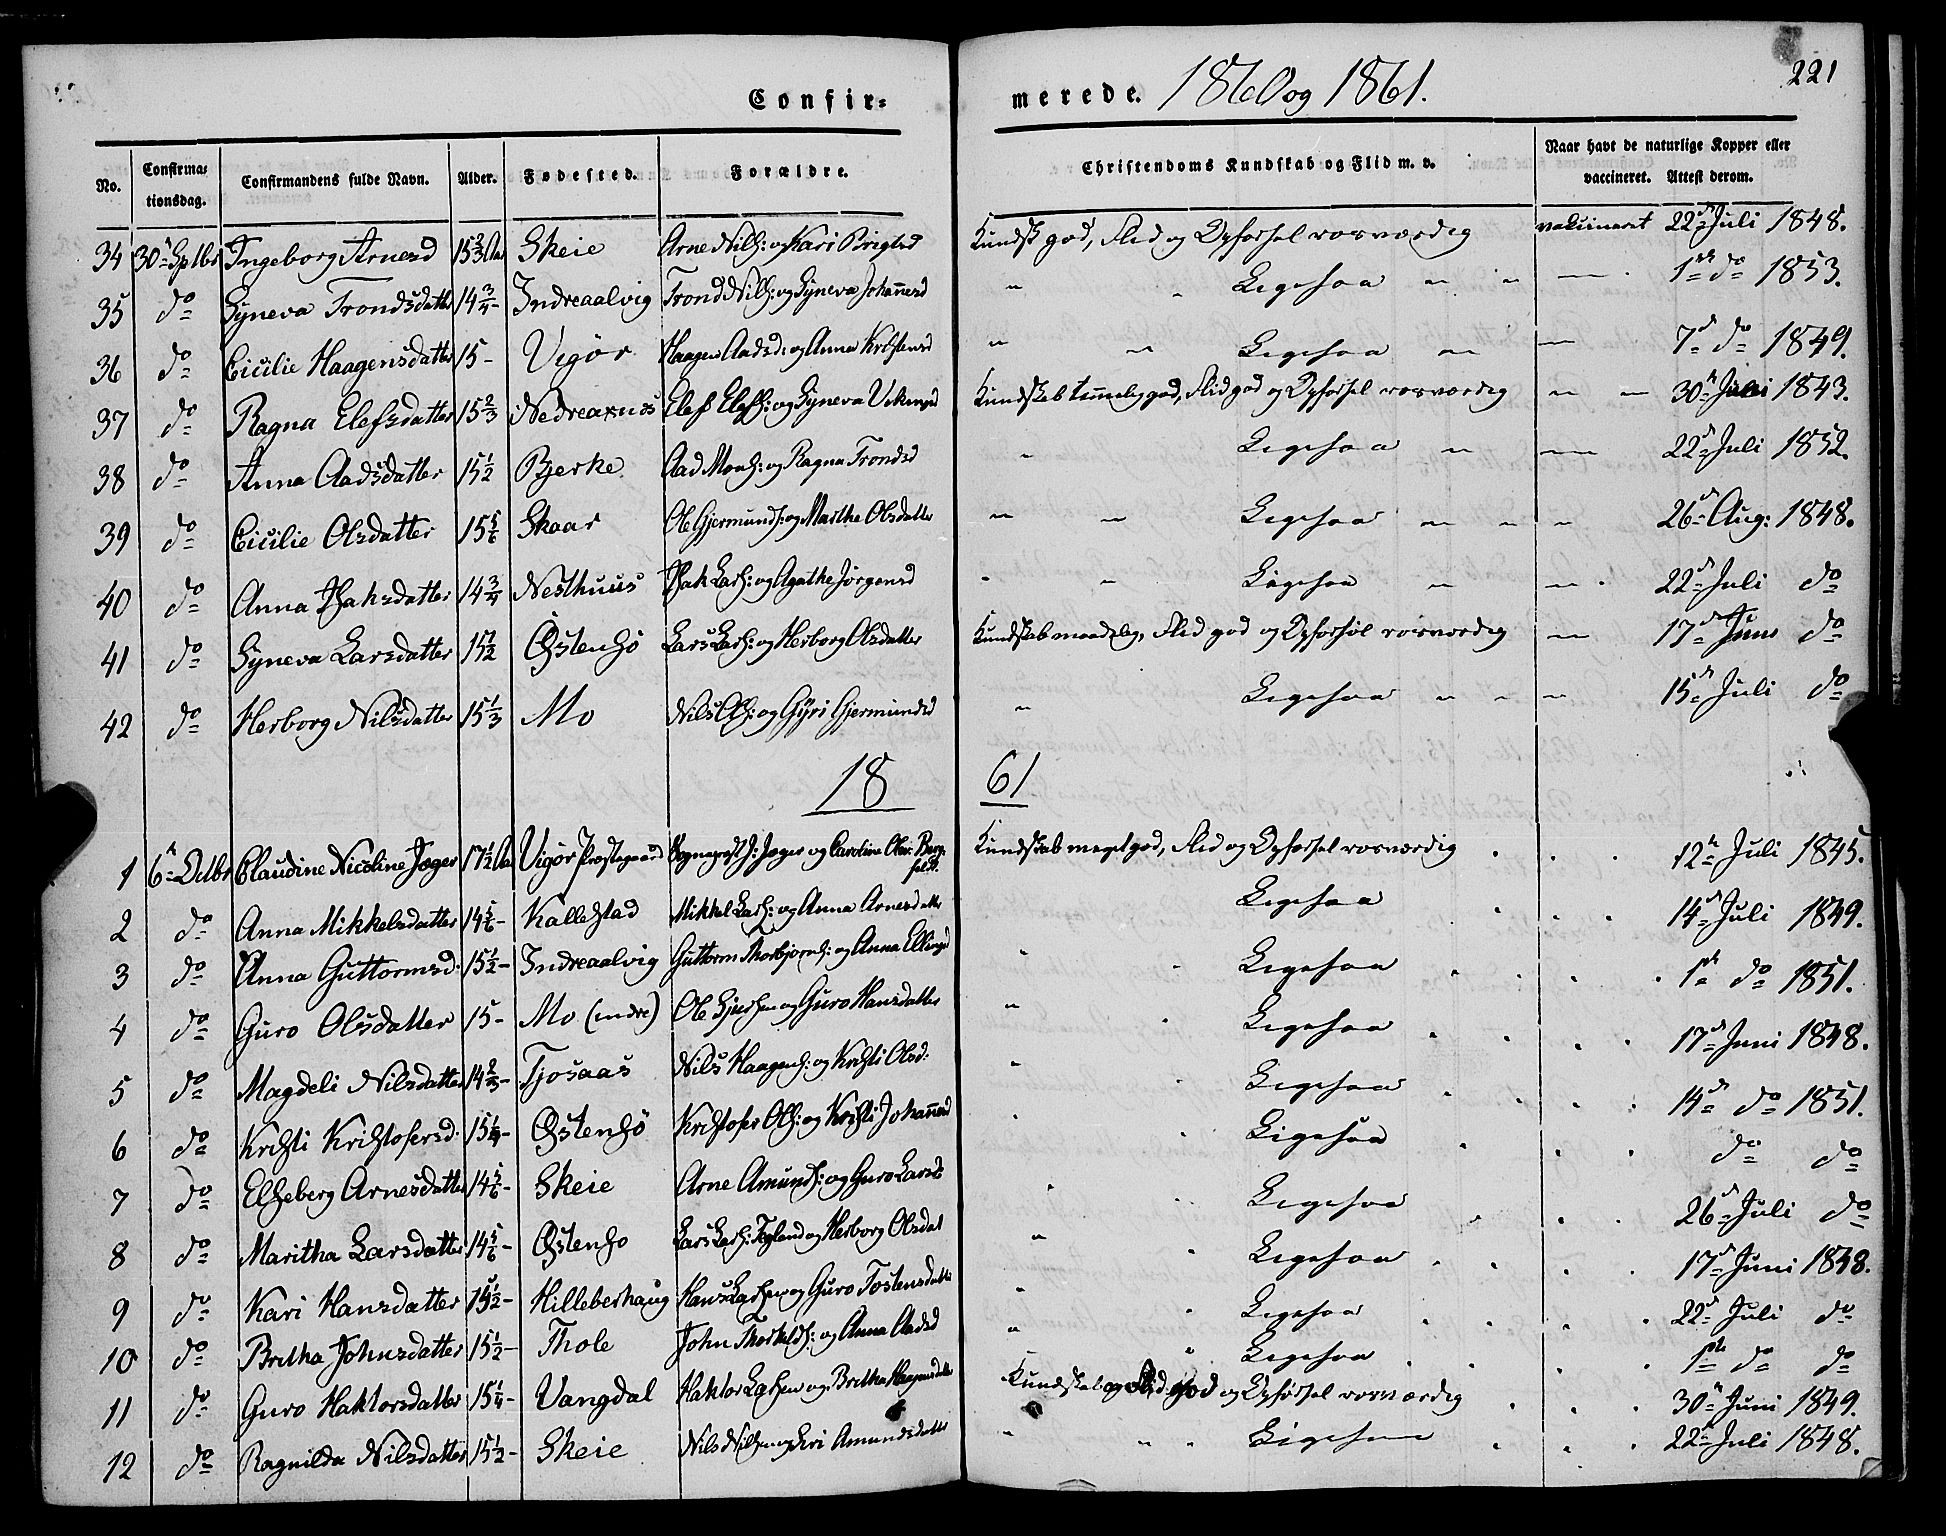 Confir-
merede. 1860 og 1861.
221
No. Confirma-tionsdag. Confirmandens fulde Navn. Alder. Fødested. Forældre. Christendoms Kundskab og Flid m. v. Naar havt de naturlige Kopper eller vaccineret. Attest derom.
34 30 Sptbr Ingeborg Arnesd 15 2/3 Aar Skeie Arne Nils: og Kari Brigtsd Kundsk god, Flid og Opførsel rosværdig vakcineret 22 Juli 1848.
35 do Syneva Trondsdatter 14 3/4 - Indreaalvig Trond Nils: og Syneva Johannesd " " Ligesaa " " — 1ste do 1853.
36 do Cicilie Haagensdatter 15 - Vigør Haagen Aads: og Anna Kristensd " " Ligesaa " — 7 do 1849.
37 do Ragna Elefsdatter 15 2/3 Nedreaxnes Elef Elefs: og Syneva Vikingsd Kundskab temmelig god, Flid god og Opførsel rosværdig " — 30 Juni 1843.
38 do Anna Aadsdatter 15 1/2 Bjerke Aad Mons: og Ragna Trondsd " Ligesaa " — 22 Juli 1852.
39 do Cicilie Olsdatter 15 5/6 Skaar Ole Gjermunds: og Marthe Olsdatter " " Ligesaa " " " 26 Aug: 1848.
40 do Anna Isaksdatter 14 3/4 Nesthuus Isak Lars: og Agathe Jørgensd " " Ligesaa " — 22 Juli do
41 do Syneva Larsdatter 15 1/2 Østensø Lars Lars: og Herborg Olsdatter Kundskab maadelig, Flid god og Opførsel rosværdig — 17 Juni do
42 do Herborg Nilsdatter 15 1/3 Mo Nils Ols: og Gyri Gjermundsd " Ligesaa " " " 15 Juli do
18 61
1 6 Octbr Claudine Nicoline Jæger 17 1/2 Aar Vigør Præstegaard Sognepræst J: Jæger og Caroline Berg- Kundskab meget god, Flid og Opførsel rosværdig 12 Juli 1845.
feldt.
2 do Anna Mikkelsdatter 14 5/6 - Kallestad Mikkel Lars: og Anna Arnesdatter Ligesaa 14 Juli 1849.
3 do Anna Guttormsd. 15 1/2 - Indreaalvig Guttorm Thorbjørns: og Anna Ellingsd " Ligesaa 1ste do 1851.
4 do Guro Olsdatter 15 - Mo (indre) Ole og Guro Hansdatter " Ligesaa 17 Juni 1848.
5 do Magdeli Nilsdatter 14 2/3 - Tjosaas Nils Haagens: og Kristi Olsd: " Ligesaa 14 do 1851.
6 do Kristi Kristofersd. 15 1/4 - Østensø Kristofer Ols: og Kristi Johannesd Ligesaa do do
7 do Elseberg Arnesdatter 14 5/6 - Skeie Arne Amunds: og Guro Larsd Ligesaa 26 Juli do
8 do Maritha Larsdatter 14 5/6 - Østensø Lars Lars: og Herborg Olsdat " Ligesaa 17 Juni 1848.
9 do Kari Hansdatter 15 1/2 - Hilleberhaug Hans Larsen og Guro Tostensdatter " Ligesaa 22 Juli do
10 do Britha Johnsdatter 15 1/2 - Thole John Thorkelds: og Anna Aadsd " Ligesaa 1ste do do
11 do Guro Haktorsdatter 15 1/4 - Vangdal Haktor Larsen og Britha Haagensdatter Kundskab og Flid god og Opførsel rosværdig 30 Juni 1849.
12 do Ragnilda Nilsdatter 15 1/2 - Skeie Nils Nilsen og Siri Amundsdatter " " Ligesaa 22 Juli 1848.